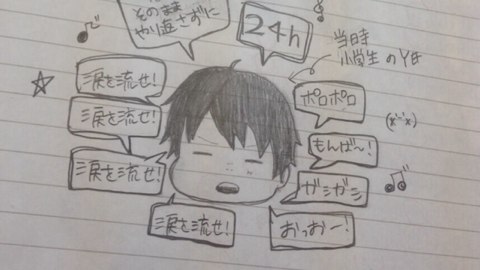 そのまま
やり返さずに
24h
当日時
小学生のY氏
涙を流せ!
涙を流せ!
涙を流せ!
涙を流せ!
ポロポロ
もんぜ〜!
ガシガシ
おっおー!